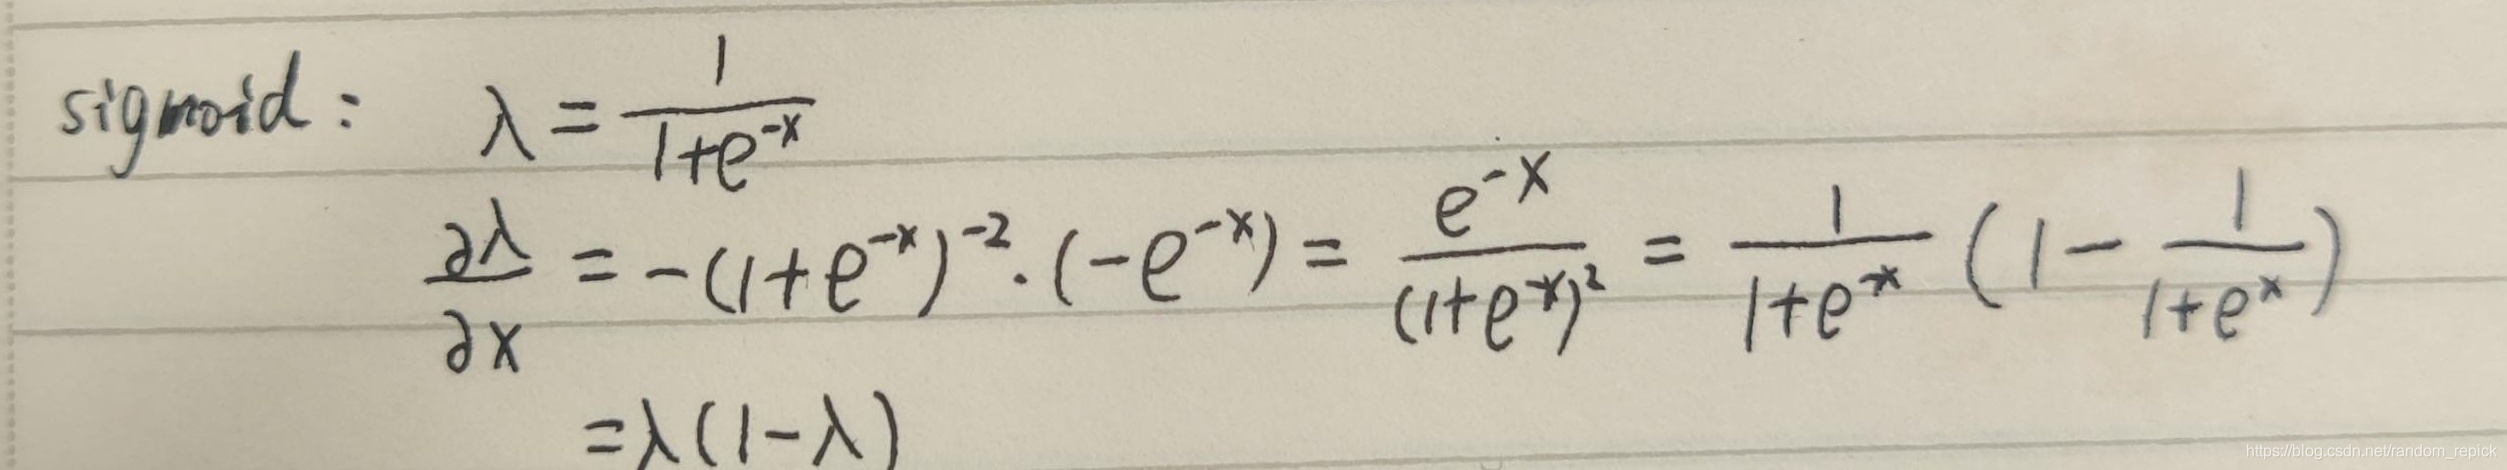 sigmoid: λ = 1/(1+e^{-x})
∂λ/∂x = -(1+e^{-x})^{-2} · (-e^{-x}) = e^{-x}/(1+e^{-x})^2 = 1/(1+e^{-x}) (1 - 1/(1+e^{x}))
=λ(1-λ)
https://blog.csdn.net/random_repick